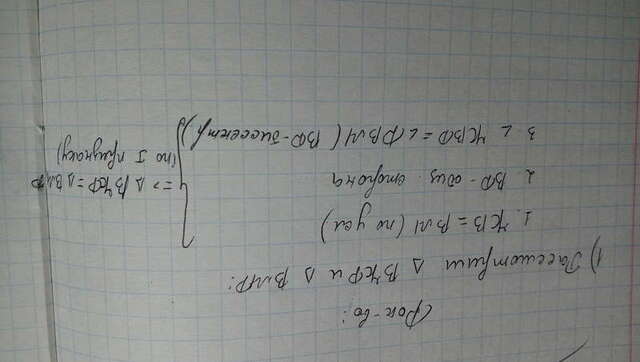 Док-во:
1) Рассмотрим Δ ВЖФ и Δ ВМФ:
1. ЖВ = ВМ (по усл)
2. ВФ - общ. сторона
3. ∠ ЖВФ = ∠ ФВМ (ВФ - биссект.)
=> Δ ВЖФ = Δ ВМФ
(по I признаку)